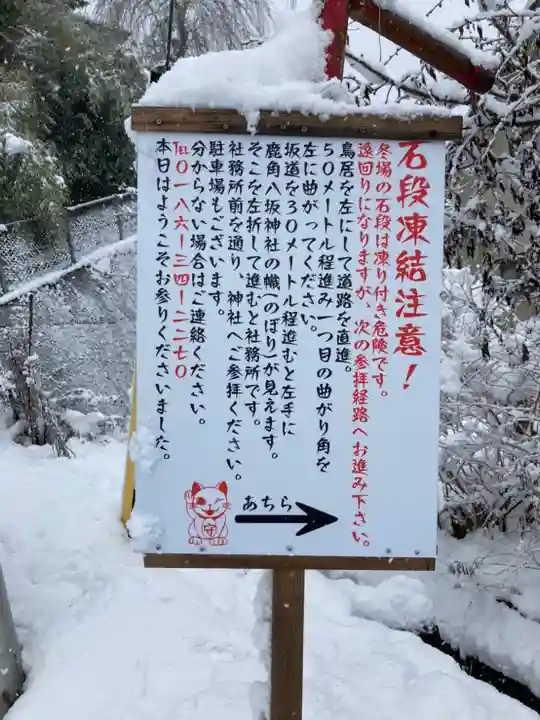 石段凍結注意！
冬場の石段は凍り付き危険です。
遠回りになりますが、次の参拝経路へお進み下さい。
鳥居を左にして道路を直進。
５０メートル程進み一つ目の曲がり角を
左に曲がってください。
坂道を３０メートル程進むと左手に
鹿角八坂神社の幟(のぼり)が見えます。
そこを左折して進むと社務所です。
社務所前を通り、神社へご参拝ください。
駐車場もございます。
分からない場合はご連絡ください。
℡０１８６ー３４ー２２７０
本日はようこそお参りくださいました。
あちら
守